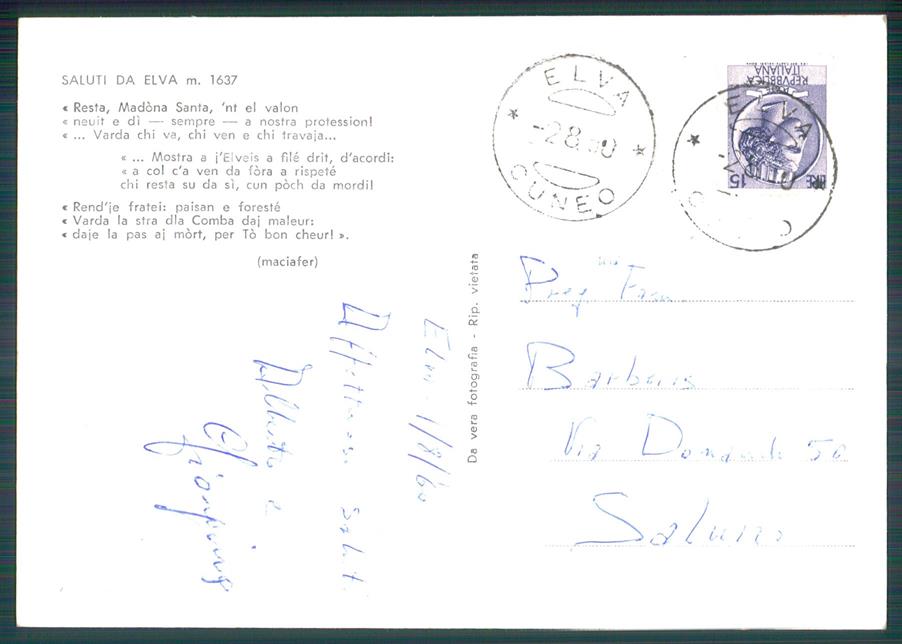 SALUTI DA ELVA m. 1637
« Resta, Madòna Santa, 'nt el valon
« neuit e dì — sempre — a nostra protession!
« ... Varda chi va, chi ven e chi travaja...
« ... Mostra a j'Elveis a filé drit, d'acordi:
« a col c'a ven da fòra a rispeté
chi resta su da sì, cun pòch da mordi!
« Rend'je fratei: paisan e foresté
« Varda la stra dla Comba daj maleur:
« daje la pas aj mòrt, per Tò bon cheur! ».
(maciafer)
Elva 1/8/60
Affettuosi Saluti
Alberto e
Gianfranco
Da vera fotografia - Rip. vietata
ELVA
-2 8 60
CUNEO
REPVBBLICA
ITALIANA
LIRE 15
ELVA
Preg Fam
Barberis
Via Donaudi 50
Saluzzo